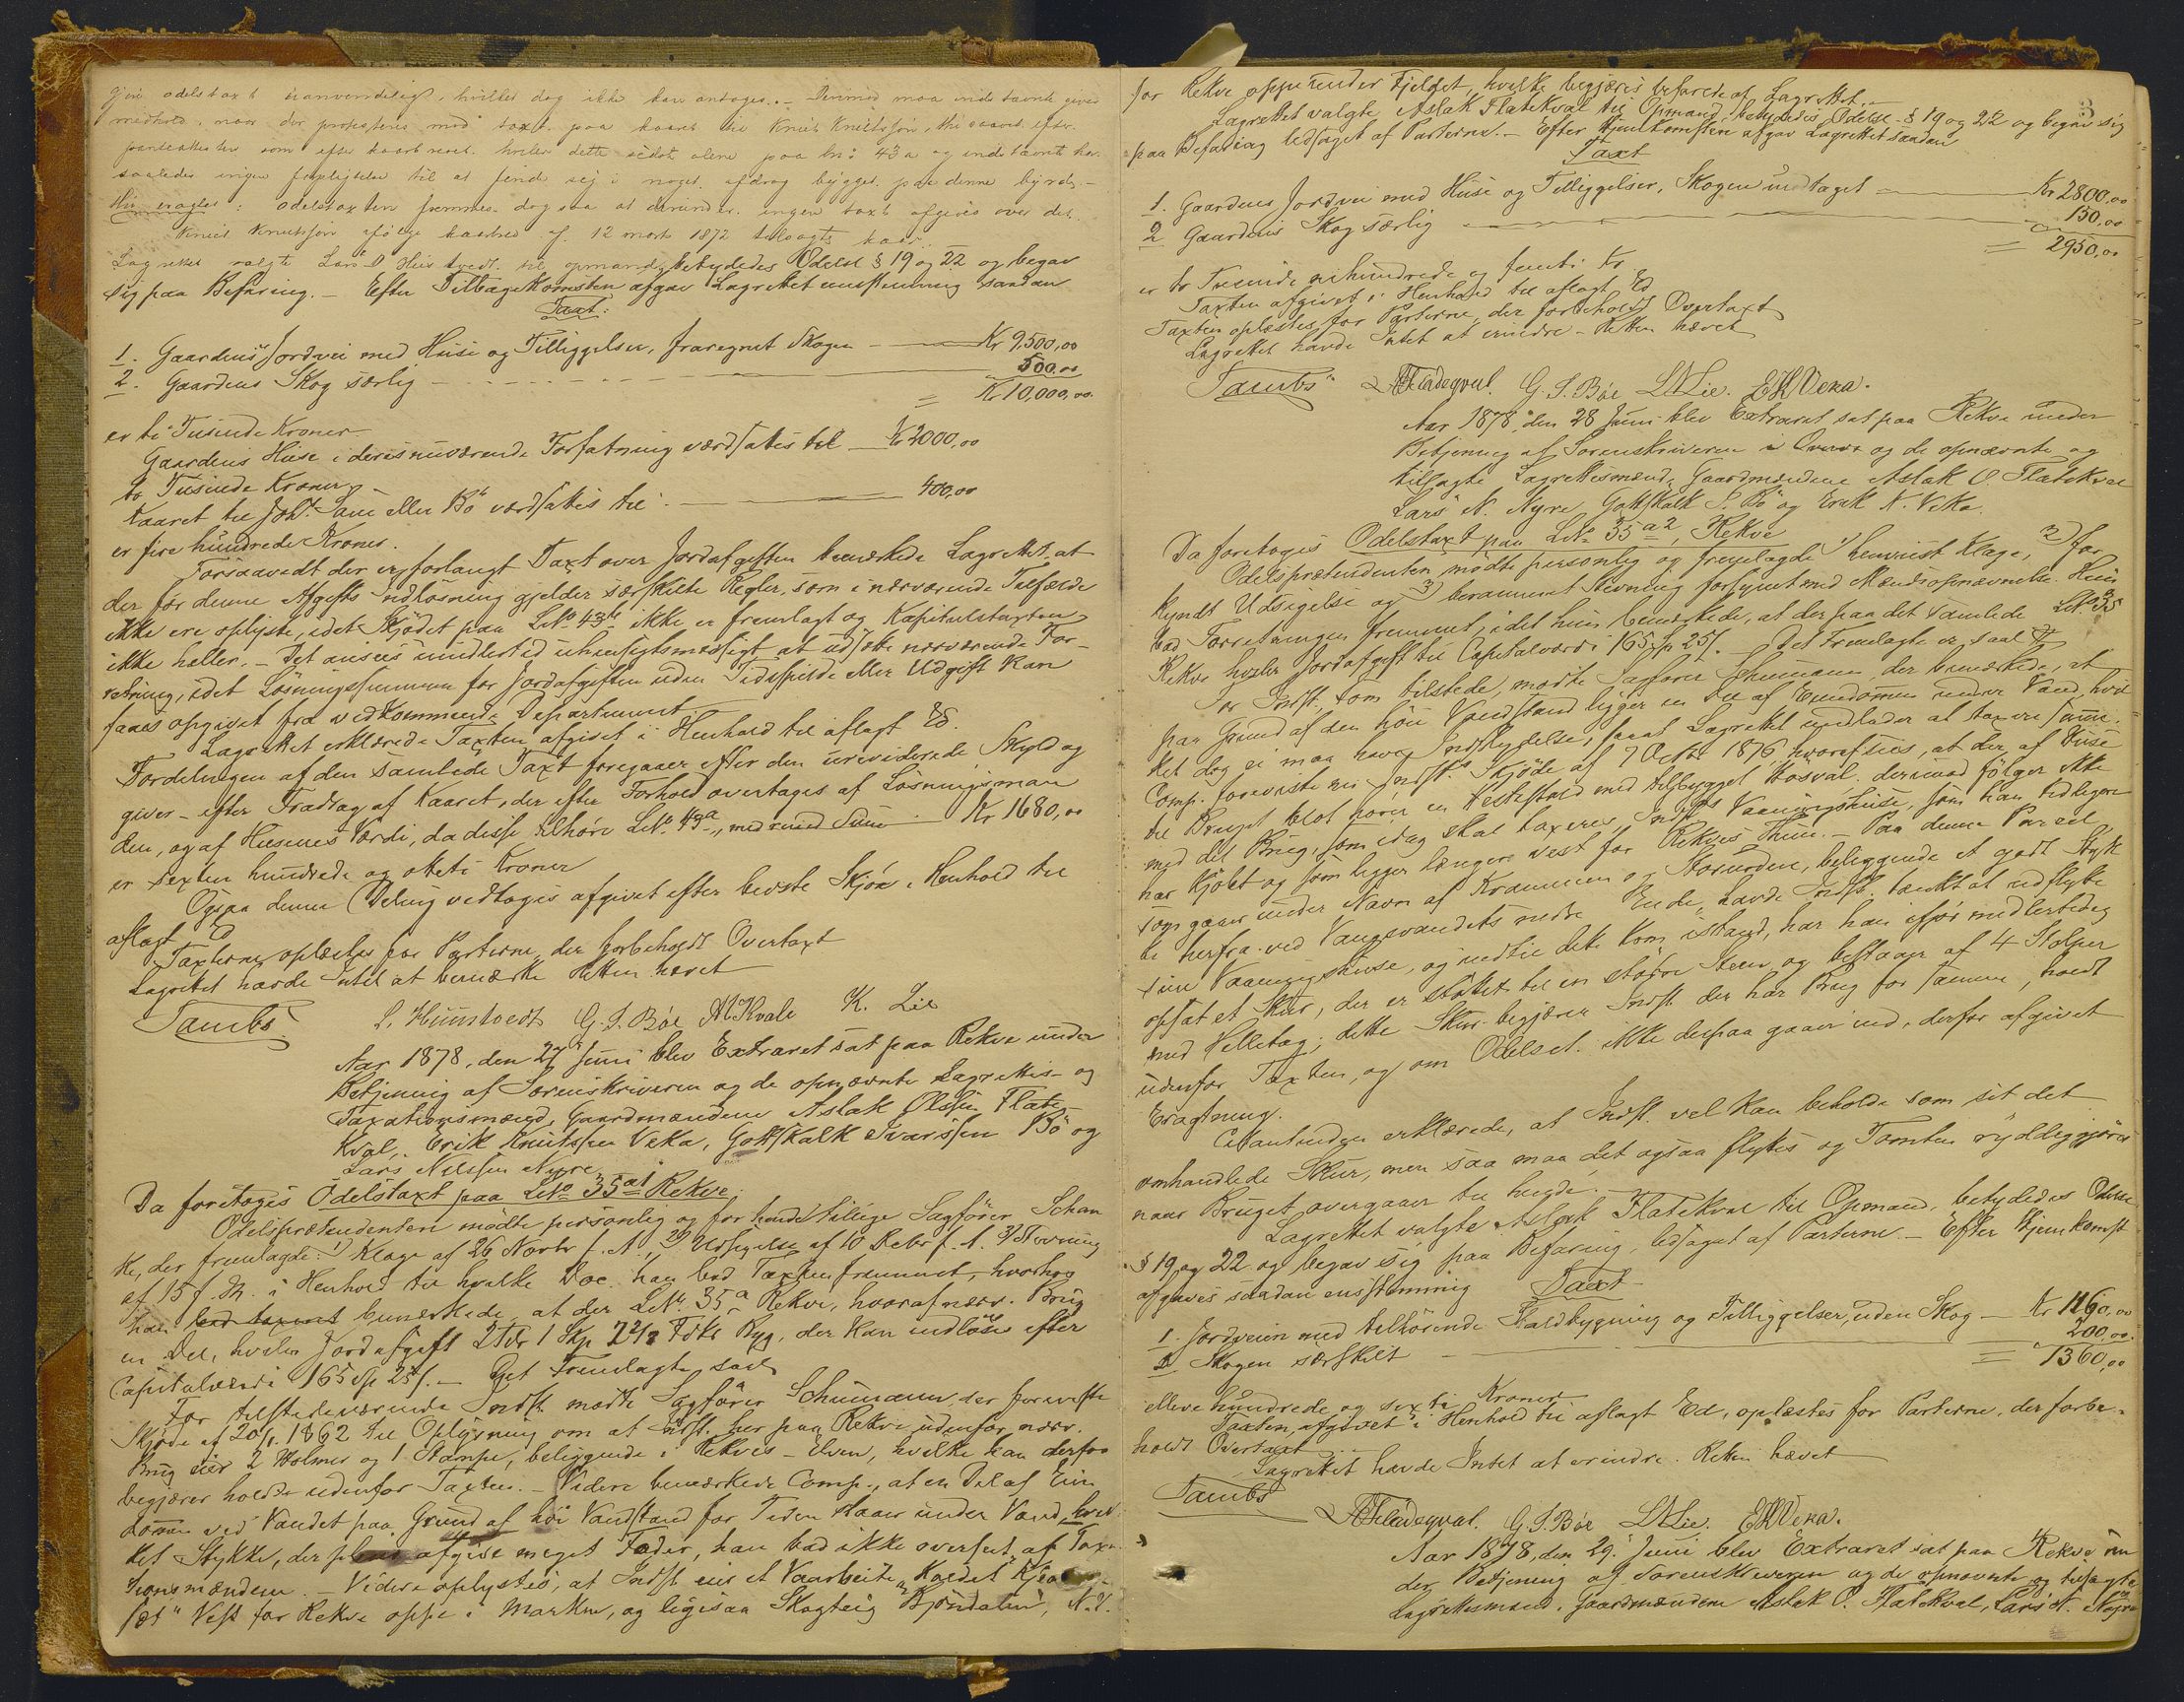 odelstaxt uanvendelig, hvilket dog ikke kan antages. — Derimod maa indstævnte gives
medhold, naar der protesteres mod taxt paa kaaret til Knut Knutssøn, thi kaaret efter
som efter kaarbrevet hviler dette sidst alene paa Lno 43a og indstævnte har
saaledes ingen forpligtelse til at finde sig i noget afdrag bygget paa denne byrde —
Thi eragtes: odelstaxten fremmes dog saa at derunder ingen taxt afgives over det
Knut Knutssøn ifølge kaarbrev af 12 marts 1872 tillagte kaar.
Lagrettet valgte Lars O Hustvedt til opmand, betydedes Odelsl § 19 og 22 og begav
sig paa Befaring. — Efter Tilbagekomsten afgav Lagrettet eenstemmig saadan
Taxt:
1. Gaardens Jordvei med Huse og Tilliggelser, fraregnet Skogen — Kr 9,500,00
2. Gaardens Skog særlig — 500,00
= Kr 10,000,00
er ti Tusinde Kroner.
Gaardens Huse i deres nuværende Forfatning værdsattes til — Kr 2000,00
to Tusinde Kroner.
Kaaret til Joh. Sam eller Bö værdsattes til — 400,00
er fire hundrede Kroner.
Forsaavidt der er forlangt Taxt over Jordafgiften bemærkede Lagrettet, at
der for denne Afgifts Indløsning gjelder særskilte Regler, som i nærværende Tilfælde
ikke ere oplyste, idet Skjødet paa LNo 43b ikke er fremlagt og Kapitalstaxten
ikke heller. — Det ansees imidlertid uhensigtsmæssigt at udsætte nærværende For-
retning, idet Løsningssummen for Jordafgiften uden Tidsspilde eller Udgift kan
faaes opgivet fra vedkommende Departement.
Lagrettet erklærede Taxten afgivet i Henhold til aflagt Ed.
Fordelingen af den samlede Taxt foregaaer efter den ureviderede Skyld og
gives — efter Fradrag af Kaaret, der efter Forhold overtages af Løsningsman-
den, og af Husenes Værdi, da disse tilhøre LNo 43a, med Kr 1680,00
er sexten hundrede og otteti Kroner
Ogsaa denne Deling vedtoges afgivet efter bedste Skjøn i Henhold til
aflagt Ed
Taxterne oplæstes for Parterne, der forbeholdt Overtaxt
Lagrettet havde Intet at bemærke Retten hævet
Tambs
L. Hümstvedt G. S. Böe A K Kvale K. Lie
Aar 1878, den 27 Juni blev Extraret sat paa Rekve under
Betjening af Sorenskriveren og de opnævnte Lagrettes- og
Taxationsmænd, Gaardmændene Aslak Olssen Flate-
kval, Erik Knutssen Veka, Gottskalk Ivarssen Bö og
Lars Nilssen Nyre
Da foretoges Odelstaxt paa LNo 35a1 Rekve.
Odelsprætendenten mødte personlig og for hende tillige Sagfører Schan
ke, der fremlagde: 1) Klage af 26 Novbr f. A., 2) Udsigelse af 10 Debr f. A. 3) Stevning
af 15 f. M. i Henhold til hvilke Doc. han bad Taxten fremmet, hvorhos
han bad taxent bemærkede, at der LNo 35a Rekve, hvoraf nærv. Brug
en Del, hviler Jordafgift 2 Tdr 1 Skp 2 2/3 Fdkr Byg, der kan indløses efter
Capitalværdi 165 Sp 25 s. — Det Fremlagte saal
For tilstedeværende Indst. mødte Sagfører Schumann, der foreviste
Skjøde af 20/1. 1862 til Oplysning om at Indst. her paa Rekve udenfor nærv.
Brug eier 2 Holmer og 1 Stampe, beliggende i Rekves-Elven, hvilke han derfor
begjærer holdt udenfor Taxten. — Videre bemærkede Comp., at en Del af Ein-
dommen ved Vandet paa Grund af høi Vandstand for Tiden staaer under Vand, hvil-
ket Stykke, der afgive meget Foder, han bad ikke overseet af Taxa-
tionsmændene. — Videre oplystes, at Indst. eier et Vaarbeite, kaldet
sæt" Vest for Rekve oppe i Marken, og ligesaa Skogteig "Bjöndalen", N.V.
for Rekve oppe under Fjeldet, hvilke begjæres befarede af Lagrettet.—
Lagrettet valgte Aslak Flatekval til Opmand, betydedes Odelsl. § 19 og 22 og begav sig
paa Befaring ledsaget af Parterne.— Efter Hjemkomsten afgav Lagrettet saadan
Taxt
1. Gaardens Jordvei med Huse og Tilliggelser, Skogen undtaget — Kr 2800,00
2 Gaardens Skog særlig — 150,00
= 2950,00
er to Tusinde nihundrede og femti Kr
Taxten afgivet i Henhold til aflagt Ed
Taxten oplæstes for Parterne, der forbeholdt Overtaxt
Lagrettet havde Intet at erindre — Retten hævet
Tambs AFladeqval. G. S. Böe LNLie. EKVeka.
Aar 1878 den 28 Juni blev Extraret sat paa Rekve under
Betjening af Sorenskriveren i Overv og de opnævnte og
tilsagte Lagrettesmænd, Gaardmændene Aslak O. Flatekval
Lars N. Nyre Gottskalk S. Bö og Erik K. Veka.
Da foretoges Odelstaxt paa LNo 35a2, Rekve
Odelsprætendenten mødte personlig og fremlagde 1) henviist Klage, 2) for
kyndt Udsigelse og 3) berammet Stevning forsynet med Mændsopnævnelse. Hun
bad Forretningen fremmet, idet hun bemærkede, at der paa det samlede LNo 35
Rekve hviler Jordafgift til Capitalværdi 165 Sp 25 s. — Det Fremlagte er saal
For Indst., som tilstede, mødte Sagfører Schumann, der bemærkede, at
paa Grund af den høie Vandstand ligger en Del af Eiendommen under Vand, hvil
ket dog ei maa have Indflydelse, saaat Lagrettet undlader at taxere samme.
Comp. foreviste nu Indst.s Skjøde af 7 Octbr 1876, hvoraf sees, at der af Huse
til Bruget blot hører en Hestestald med tilbygget Høsval. derimod følger ikke
med det Brug, som idag skal taxeres, Indst.s Vaaningshuse, som han tidligere
har kjøbt og som ligger længere vest for Rekves Thun. — Paa denne Parcel,
som gaaer under Navn af Krammen og Storurdene, beliggende et godt Styk
ke herfra ved Vangsvandets nedre Ende, havde Indst. tænkt at udflytte
sine Vaaningshuse, og indtil dette kom istand, har han ifjor midlertidig
opsat et Skur, der er støttet til en større Steen og bestaaer af 4 Stolper
med Helletag; dette Skur begjærer Indst. der har Brug for samme, holdt
udenfor Taxten, og om Odelsct. ikke derpaa gaaer ind, derfor afgivet
Eragtning.
Citantinden erklærede, at Indst. vel kan beholde som sit det
omhandlede Skur, men saa maa det ogsaa flyttes og Tomten ryddiggjøres
naar Bruget overgaaer til hende.—
Lagrettet valgte Aslak Flatekval til Opmand, betydedes Odelsl
§ 19 og 22 og begav sig paa Befaring, ledsaget af Parterne.— Efter Hjemkomst
afgaves saadan eensstemmig Taxt
1. Jordveien med tilhørende Staldbygning og Tilliggelser, uden Skog — Kr 1160,00
2 Skogen særskilt — 200,00
= 1360,00
elleve hundrede og sexti Kroner
Taxten, afgivet i Henhold til aflagt Ed, oplæstes for Parterne, der forbe-
holdt Overtaxt
Lagrettet havde Intet at erindre. Retten hævet
Tambs
AFladeqval. G. S. Böe LNLie. EKVeka.
Aar 1878, den 29. Juni blev Extraret sat paa Rekve un
der Betjening af Sorenskriveren og de opnævnte og tilsagte
Lagrettesmænd, Gaardmændene Aslak O. Flatekval, Lars N. Nyre